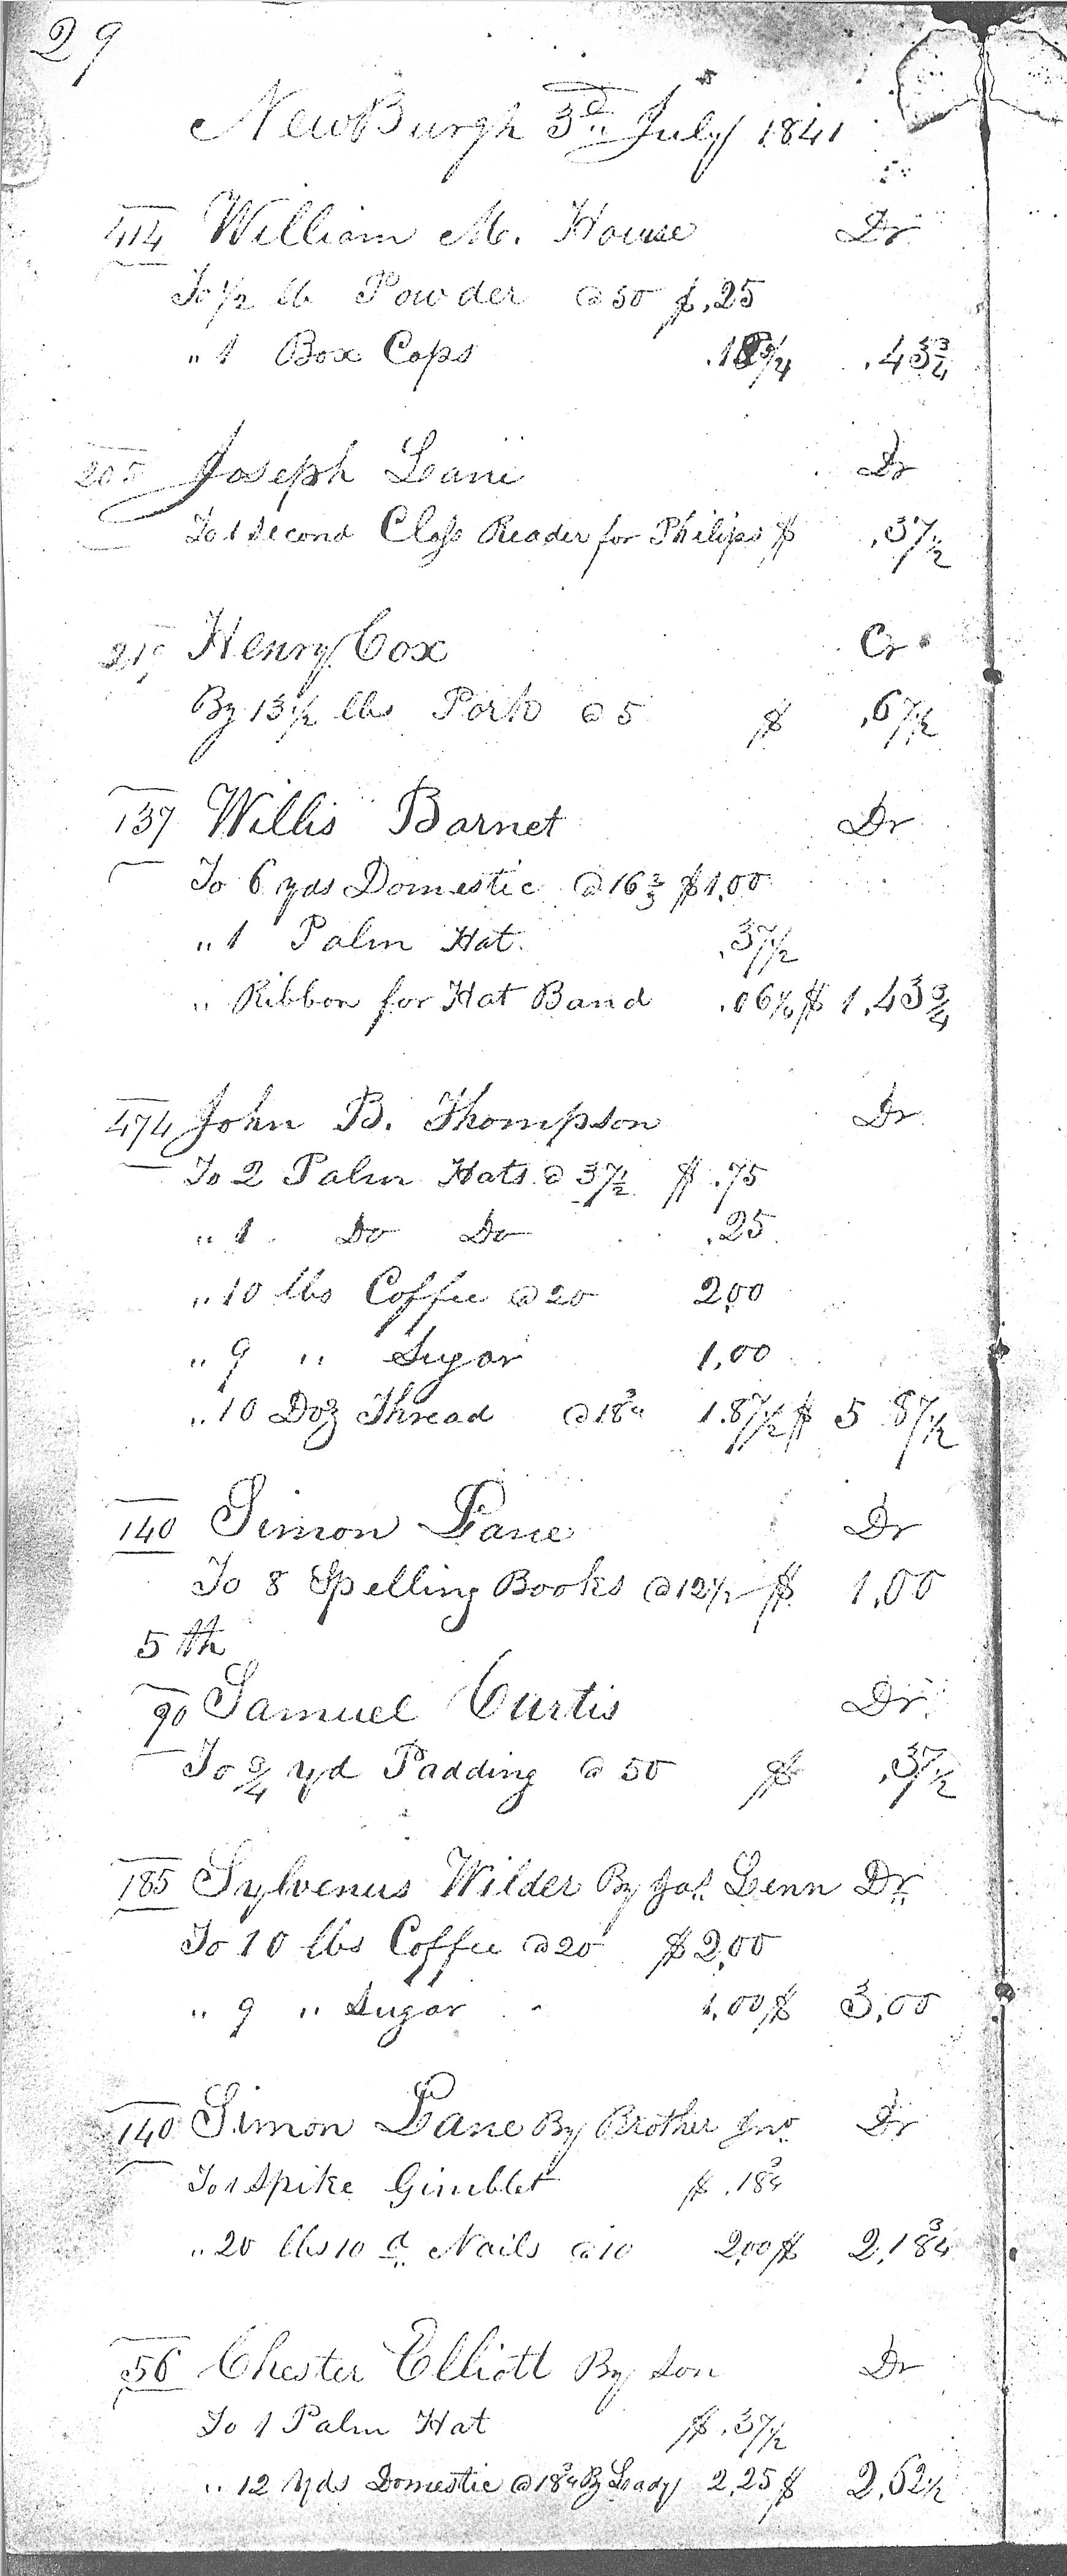 29
NewBurgh 3d July 1841
414 William M. House Dr
To 1/2 lb Powder @ 50 $ .25
" 1 Box Caps .18 3/4 .43 3/4
205 Joseph Lane Dr
To 1 Second Class Reader for Philips $ .37 1/2
Henry Cox Cr
By 13 1/2 lbs Pork @ 5 $ .67 1/2
137 Willis Barnet Dr
To 6 yds Domestic @ 16 2/3 $1.00
" 1 Palm Hat .37 1/2
" Ribbon for Hat Band .06 1/4 $ 1.43 3/4
474 John B. Thompson Dr
To 2 Palm Hats @ 37 1/2 $ .75
" 1 Do Do .25
" 10 lbs Coffee @ 20 2.00
" 9 " Sugar 1.00
" 10 Doz Thread @ 18 3/4 1.87 1/2 $ 5 87 1/2
140 Simon Lane Dr
To 8 Spelling Books @ 12 1/2 $ 1.00
5th
90 Samuel Curtis Dr
To 3/4 yd Padding @ 50 $ .37 1/2
185 Sylvenus Wilder By Jas. Lenn Dr
To 10 lbs Coffee @ 20 $2.00
" 9 " Sugar 1.00 $ 3.00
140 Simon Lane By Brother Jno. Dr
To 1 Spike Gimblet $ .18 3/4
" 20 lbs 10 d Nails @ 10 2.00 $ 2.18 3/4
56 Chester Elliott By Son Dr
To 1 Palm Hat $ .37 1/2
" 12 Yds Domestic @ 18 3/4 By Lady 2.25 $ 2.62 1/2